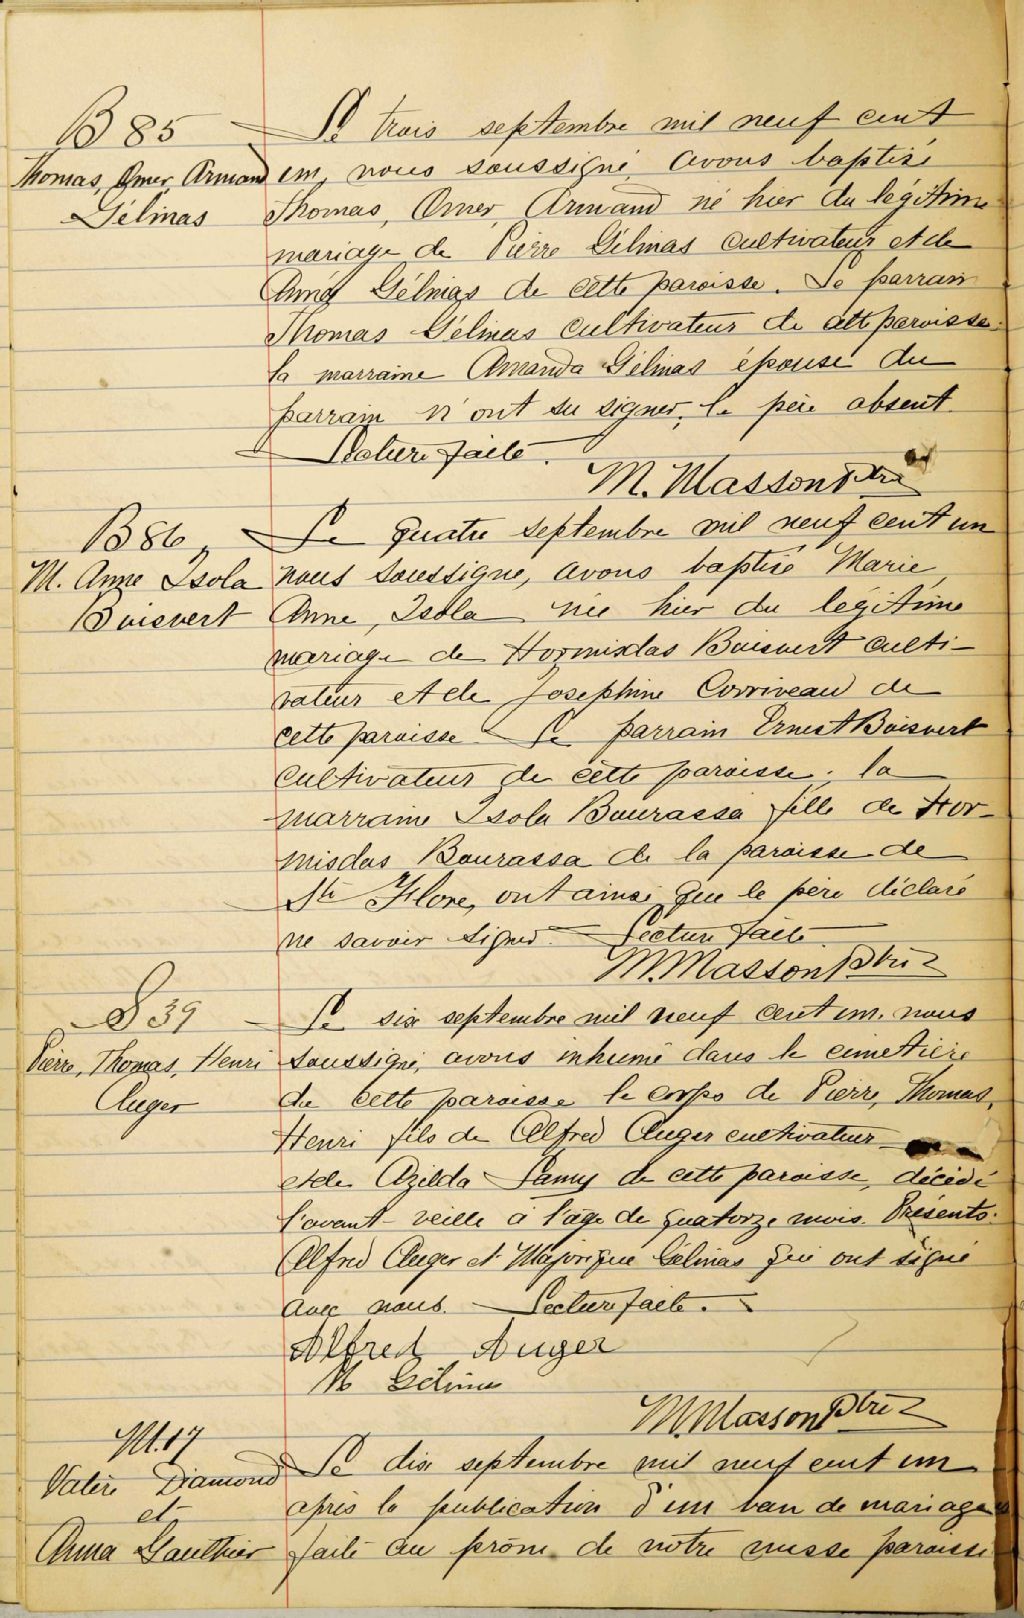 B 85
Thomas, Omer, Armand
Gélinas
Le trois septembre mil neuf cent
un, nous soussigné, avons baptisé
Thomas, Omer, Armand né hier du légitime
mariage de Pierre Gélinas cultivateur et de
Gélinas de cette paroisse. Le parrain
Thomas Gélinas cultivateur de cette paroisse.
la marraine Amanda Gélinas épouse du
parrain n'ont su signer, le père absent.
Lecture faite.
M. Masson Ptre
B 86
M. Anne Isola
Boisvert
Le quatre septembre mil neuf cent un
nous soussigné, avons baptisé Marie,
Anne, Isola née hier du légitime
mariage de Hormisdas Boisvert culti-
vateur et de Josephine Corriveau de
cette paroisse. Le parrain Ernest Boisvert
cultivateur de cette paroisse, la
marraine Isola Bourassa fille de Hor-
misdas Bourassa de la paroisse de
Ste Flore, ont ainsi que le père déclaré
ne savoir signer. Lecture faite
M. Masson Ptre
S 39
Pierre, Thomas, Henri
Auger
Le six septembre mil neuf cent un, nous
soussigné, avons inhumé dans le cimetière
de cette paroisse le corps de Pierre, Thomas,
Henri fils de Alfred Auger cultivateur
et de Azilda Lamy de cette paroisse, décédé
l'avant-veille à l'âge de quatorze mois. Présents.
Alfred Auger et Majorique Gélinas qui ont signé
avec nous. Lecture faite.
Alfred Auger
M Gélinas
M. Masson Ptre
M. 17
Valère Diamond
et
Anna Gauthier
Le dix septembre mil neuf cent un
après la publication d'un ban de mariage
faite au prône de notre messe paroissi